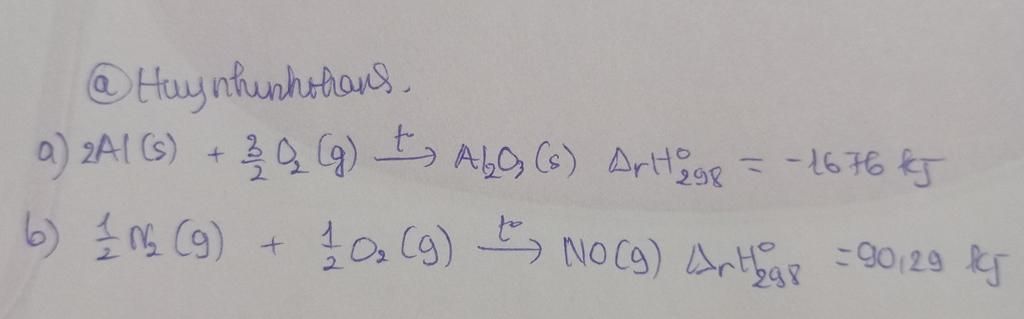 @Huynhnhohans.
a) 2Al (s) + 3/2 O₂ (g) —t°→ Al₂O₃ (s) ΔrH°298 = -1676 kJ
b) 1/2 N₂ (g) + 1/2 O₂ (g) —t°→ NO (g) ΔrH°298 = 90,29 kJ